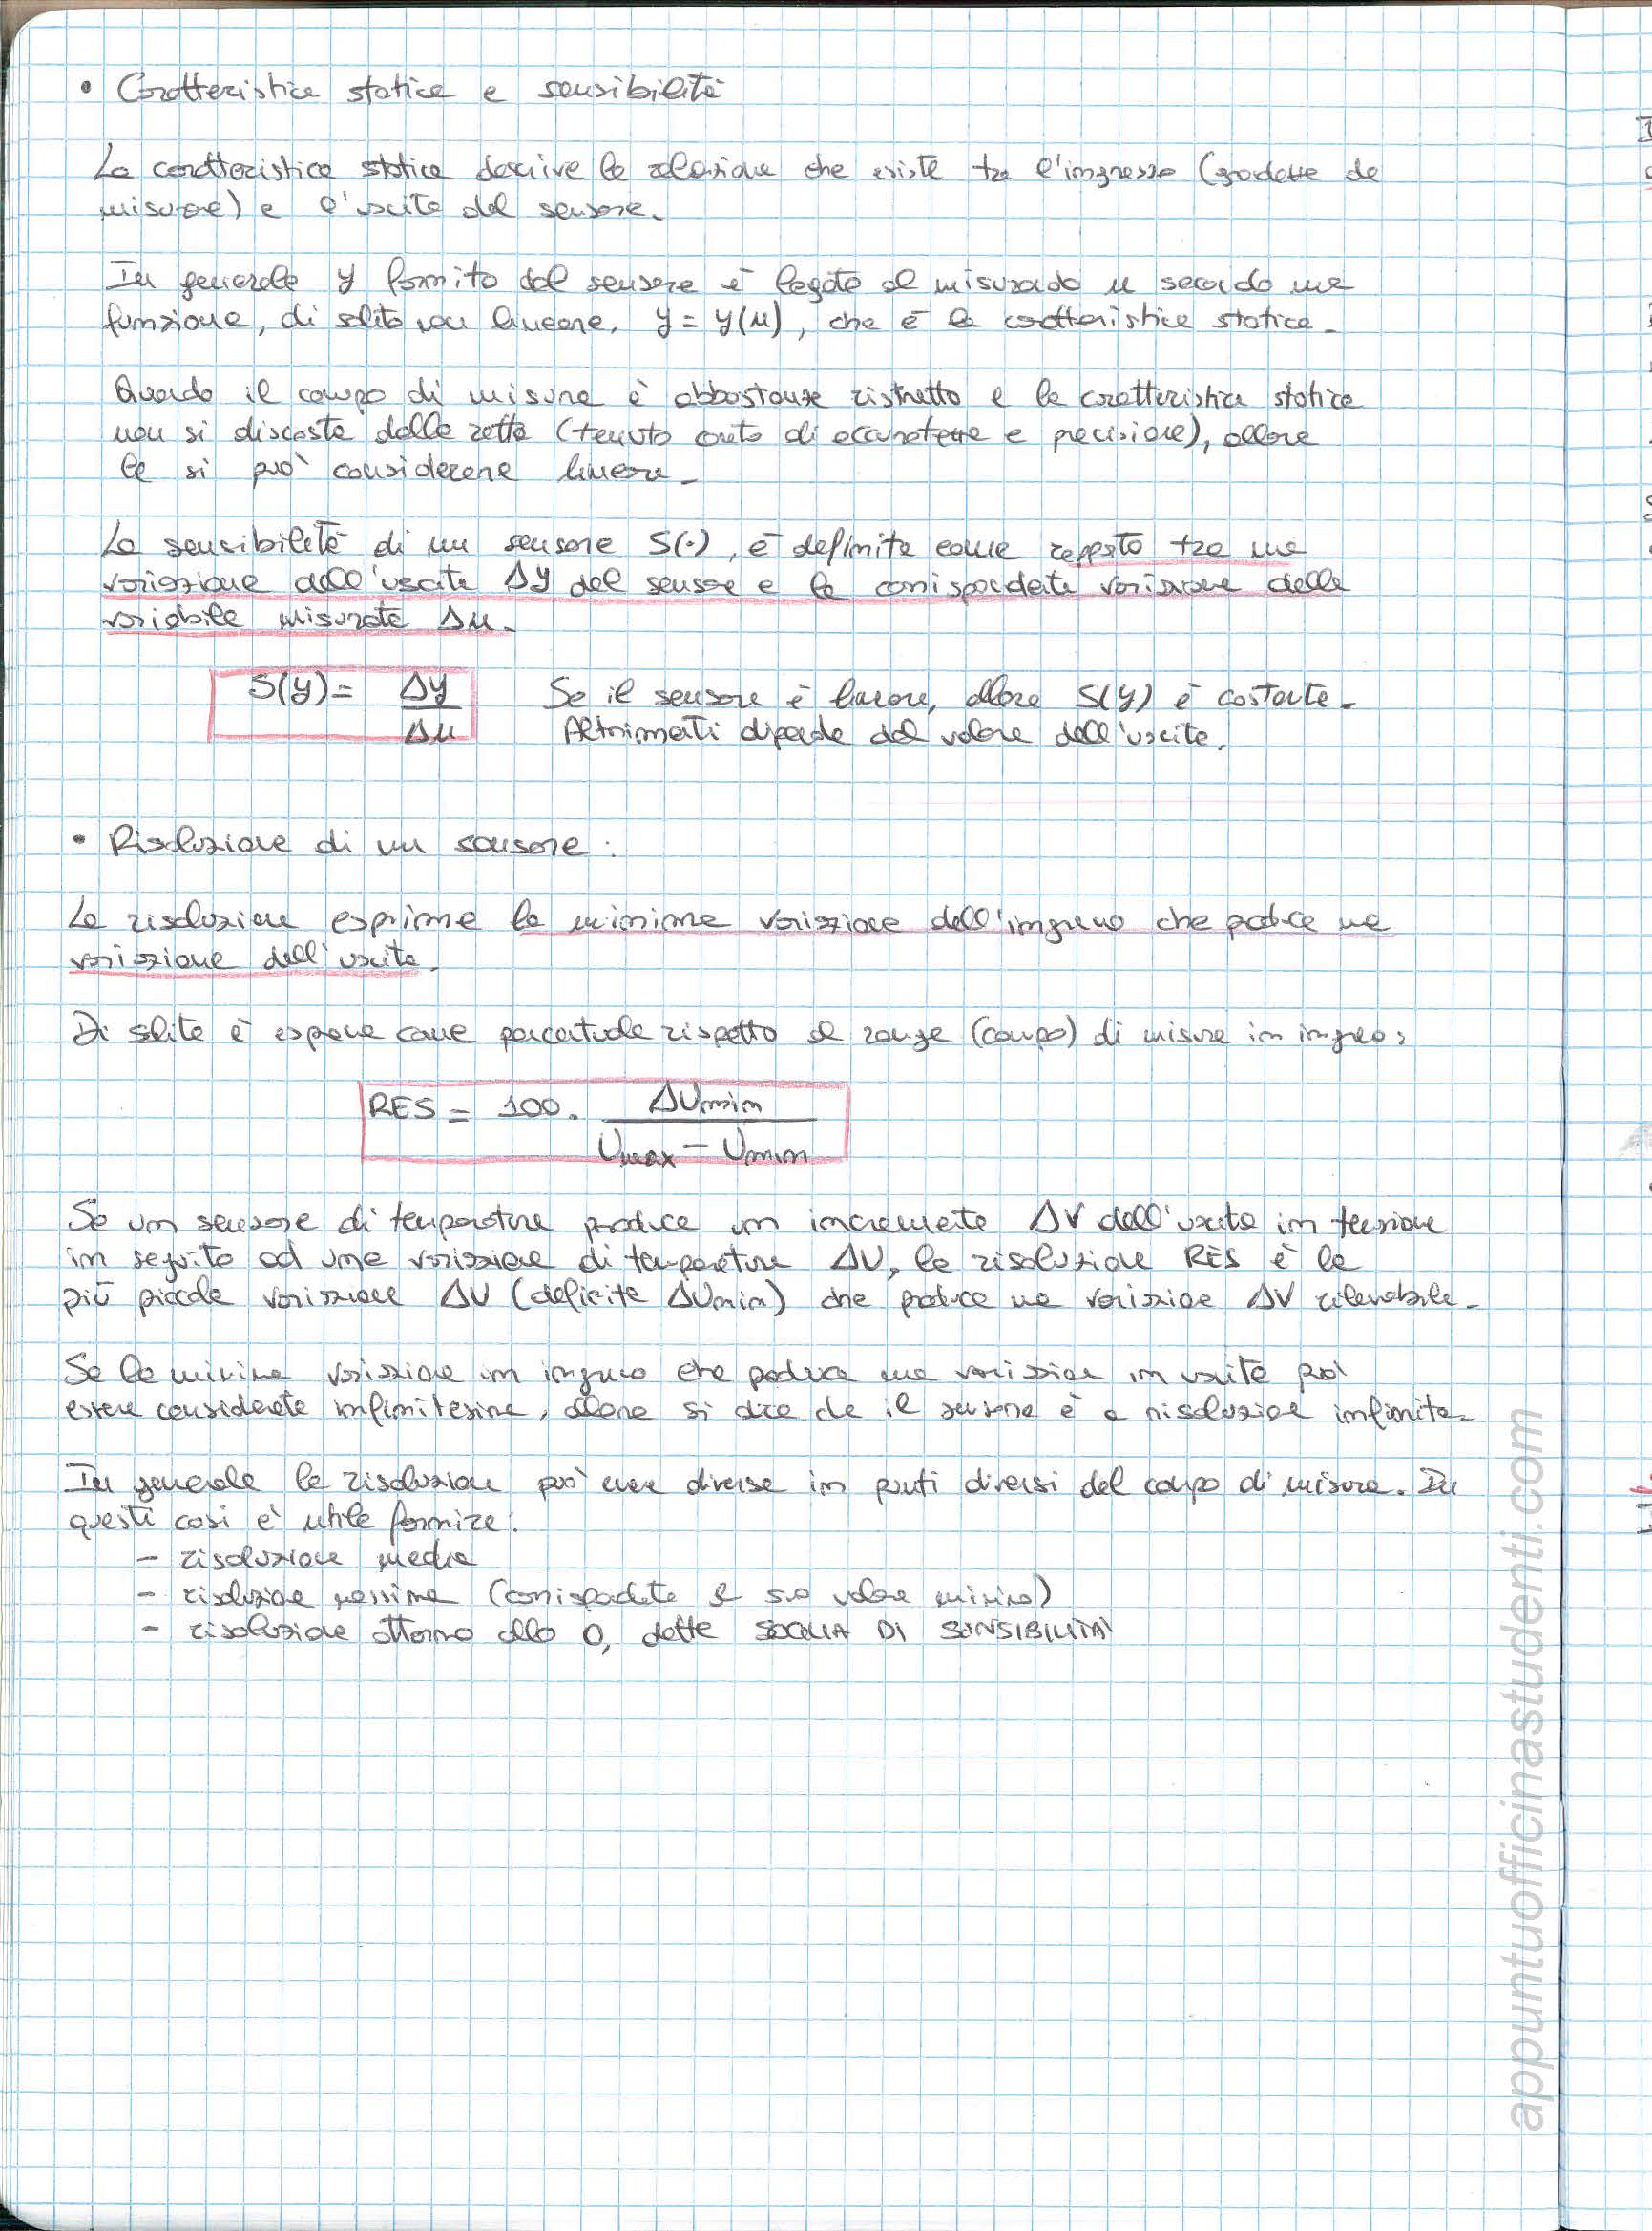 • Caratteristica statica e sensibilità
La caratteristica statica descrive la relazione che esiste tra l'ingresso (grandezza da
misurare) e l'uscita del sensore.
In generale y fornito dal sensore è legato al misurando u secondo una
funzione, di solito non lineare, y = y(u), che è la caratteristica statica.
Quando il campo di misura è abbastanza ristretto e la caratteristica statica
non si discosta dalla retta (tenuto conto di accuratezza e precisione), allora
la si può considerare lineare.
La sensibilità di un sensore S(·), è definita come rapporto tra una
variazione dell'uscita Δy del sensore e la corrispondente variazione della
variabile misurata Δu.
S(y) = Δy / Δu
Se il sensore è lineare, allora S(y) è costante.
Altrimenti dipende dal valore dell'uscita.
• Risoluzione di un sensore:
La risoluzione esprime la minima variazione dell'ingresso che produce una
variazione dell'uscita.
Di solito è espressa come percentuale rispetto al range (campo) di misura in ingresso:
RES = 100 · ΔUmin / Umax - Umin
Se un sensore di temperatura produce un incremento ΔV dell'uscita in tensione
in seguito ad una variazione di temperatura ΔU, la risoluzione RES è la
più piccola variazione ΔU (definita ΔUmin) che produce una variazione ΔV rilevabile.
Se la minima variazione in ingresso che produce una variazione in uscita può
essere considerata infinitesima, allora si dice che il sensore è a risoluzione infinita.
In generale la risoluzione può essere diversa in punti diversi del campo di misura. In
questi casi è utile fornire:
- risoluzione media
- risoluzione massima (corrispondente al suo valore minimo)
- risoluzione attorno allo 0, detta SOGLIA DI SENSIBILITA'
appuntuofficinastudenti.com